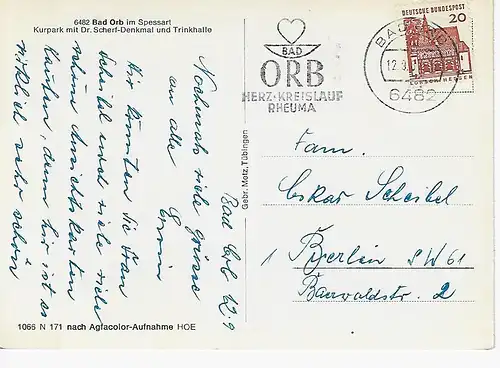 6482 Bad Orb im Spessart
Kurpark mit Dr. Scherf-Denkmal und Trinkhalle
Bad Orb 12.9
Nochmals viele grüsse
an alle
Erwin
Wir könnten Sie Frau
Scheibel und viele viele
schöne Ansichtskarten
kaufen, denn hier ist es
wirklich sehr schön
1066 N 171 nach Agfacolor-Aufnahme HOE
Gebr. Metz, Tübingen
BAD
ORB
HERZ-KREISLAUF
RHEUMA
BAD ORB
12.9
6482
DEUTSCHE BUNDESPOST
20
LORSCH HESSEN
Fam.
Oskar Scheibel
1 Berlin SW 61
Baerwaldstr. 2